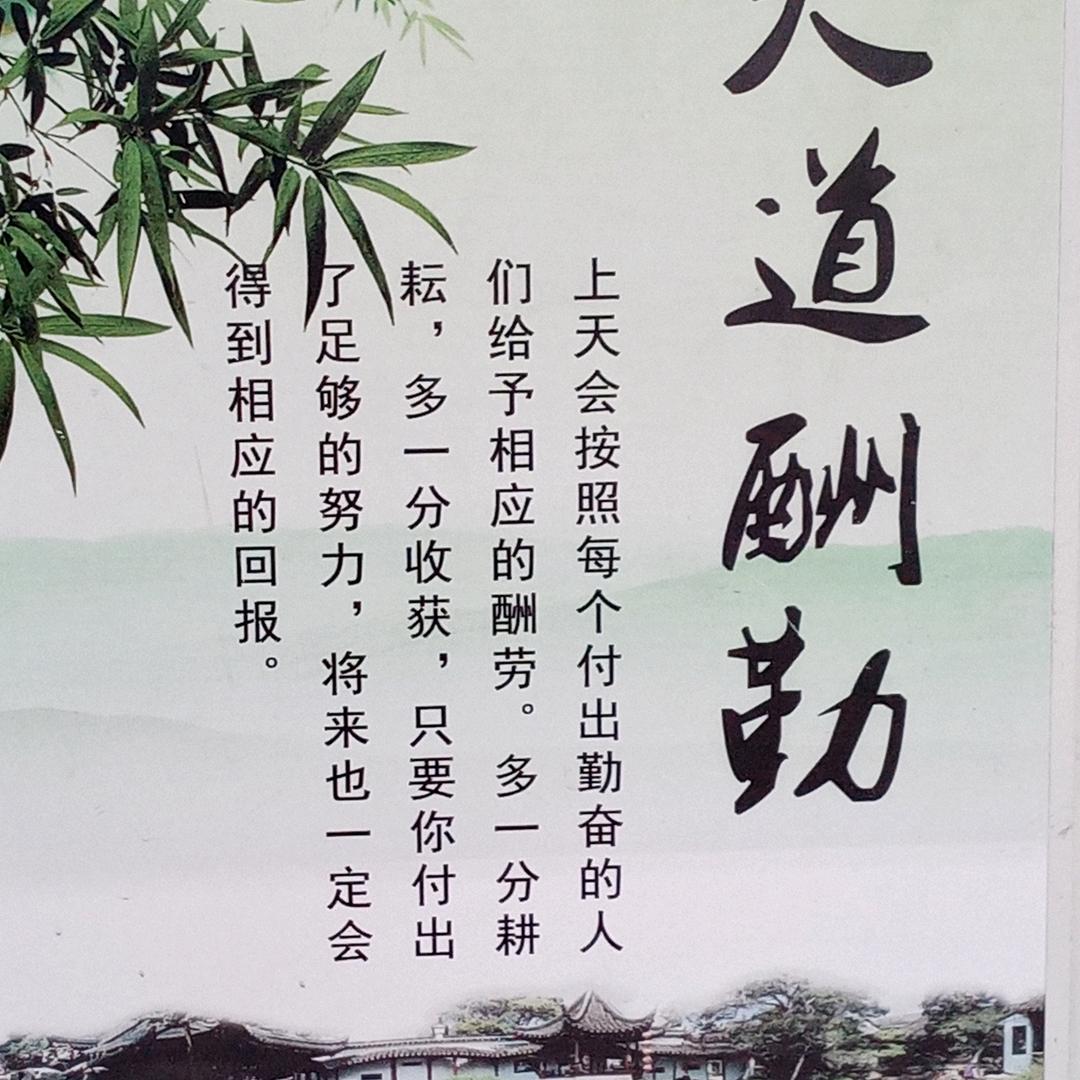 天道酬勤
上天会按照每个付出勤奋的人
们给予相应的酬劳。多一分耕
耘，多一分收获，只要你付出
了足够的努力，将来也一定会
得到相应的回报。